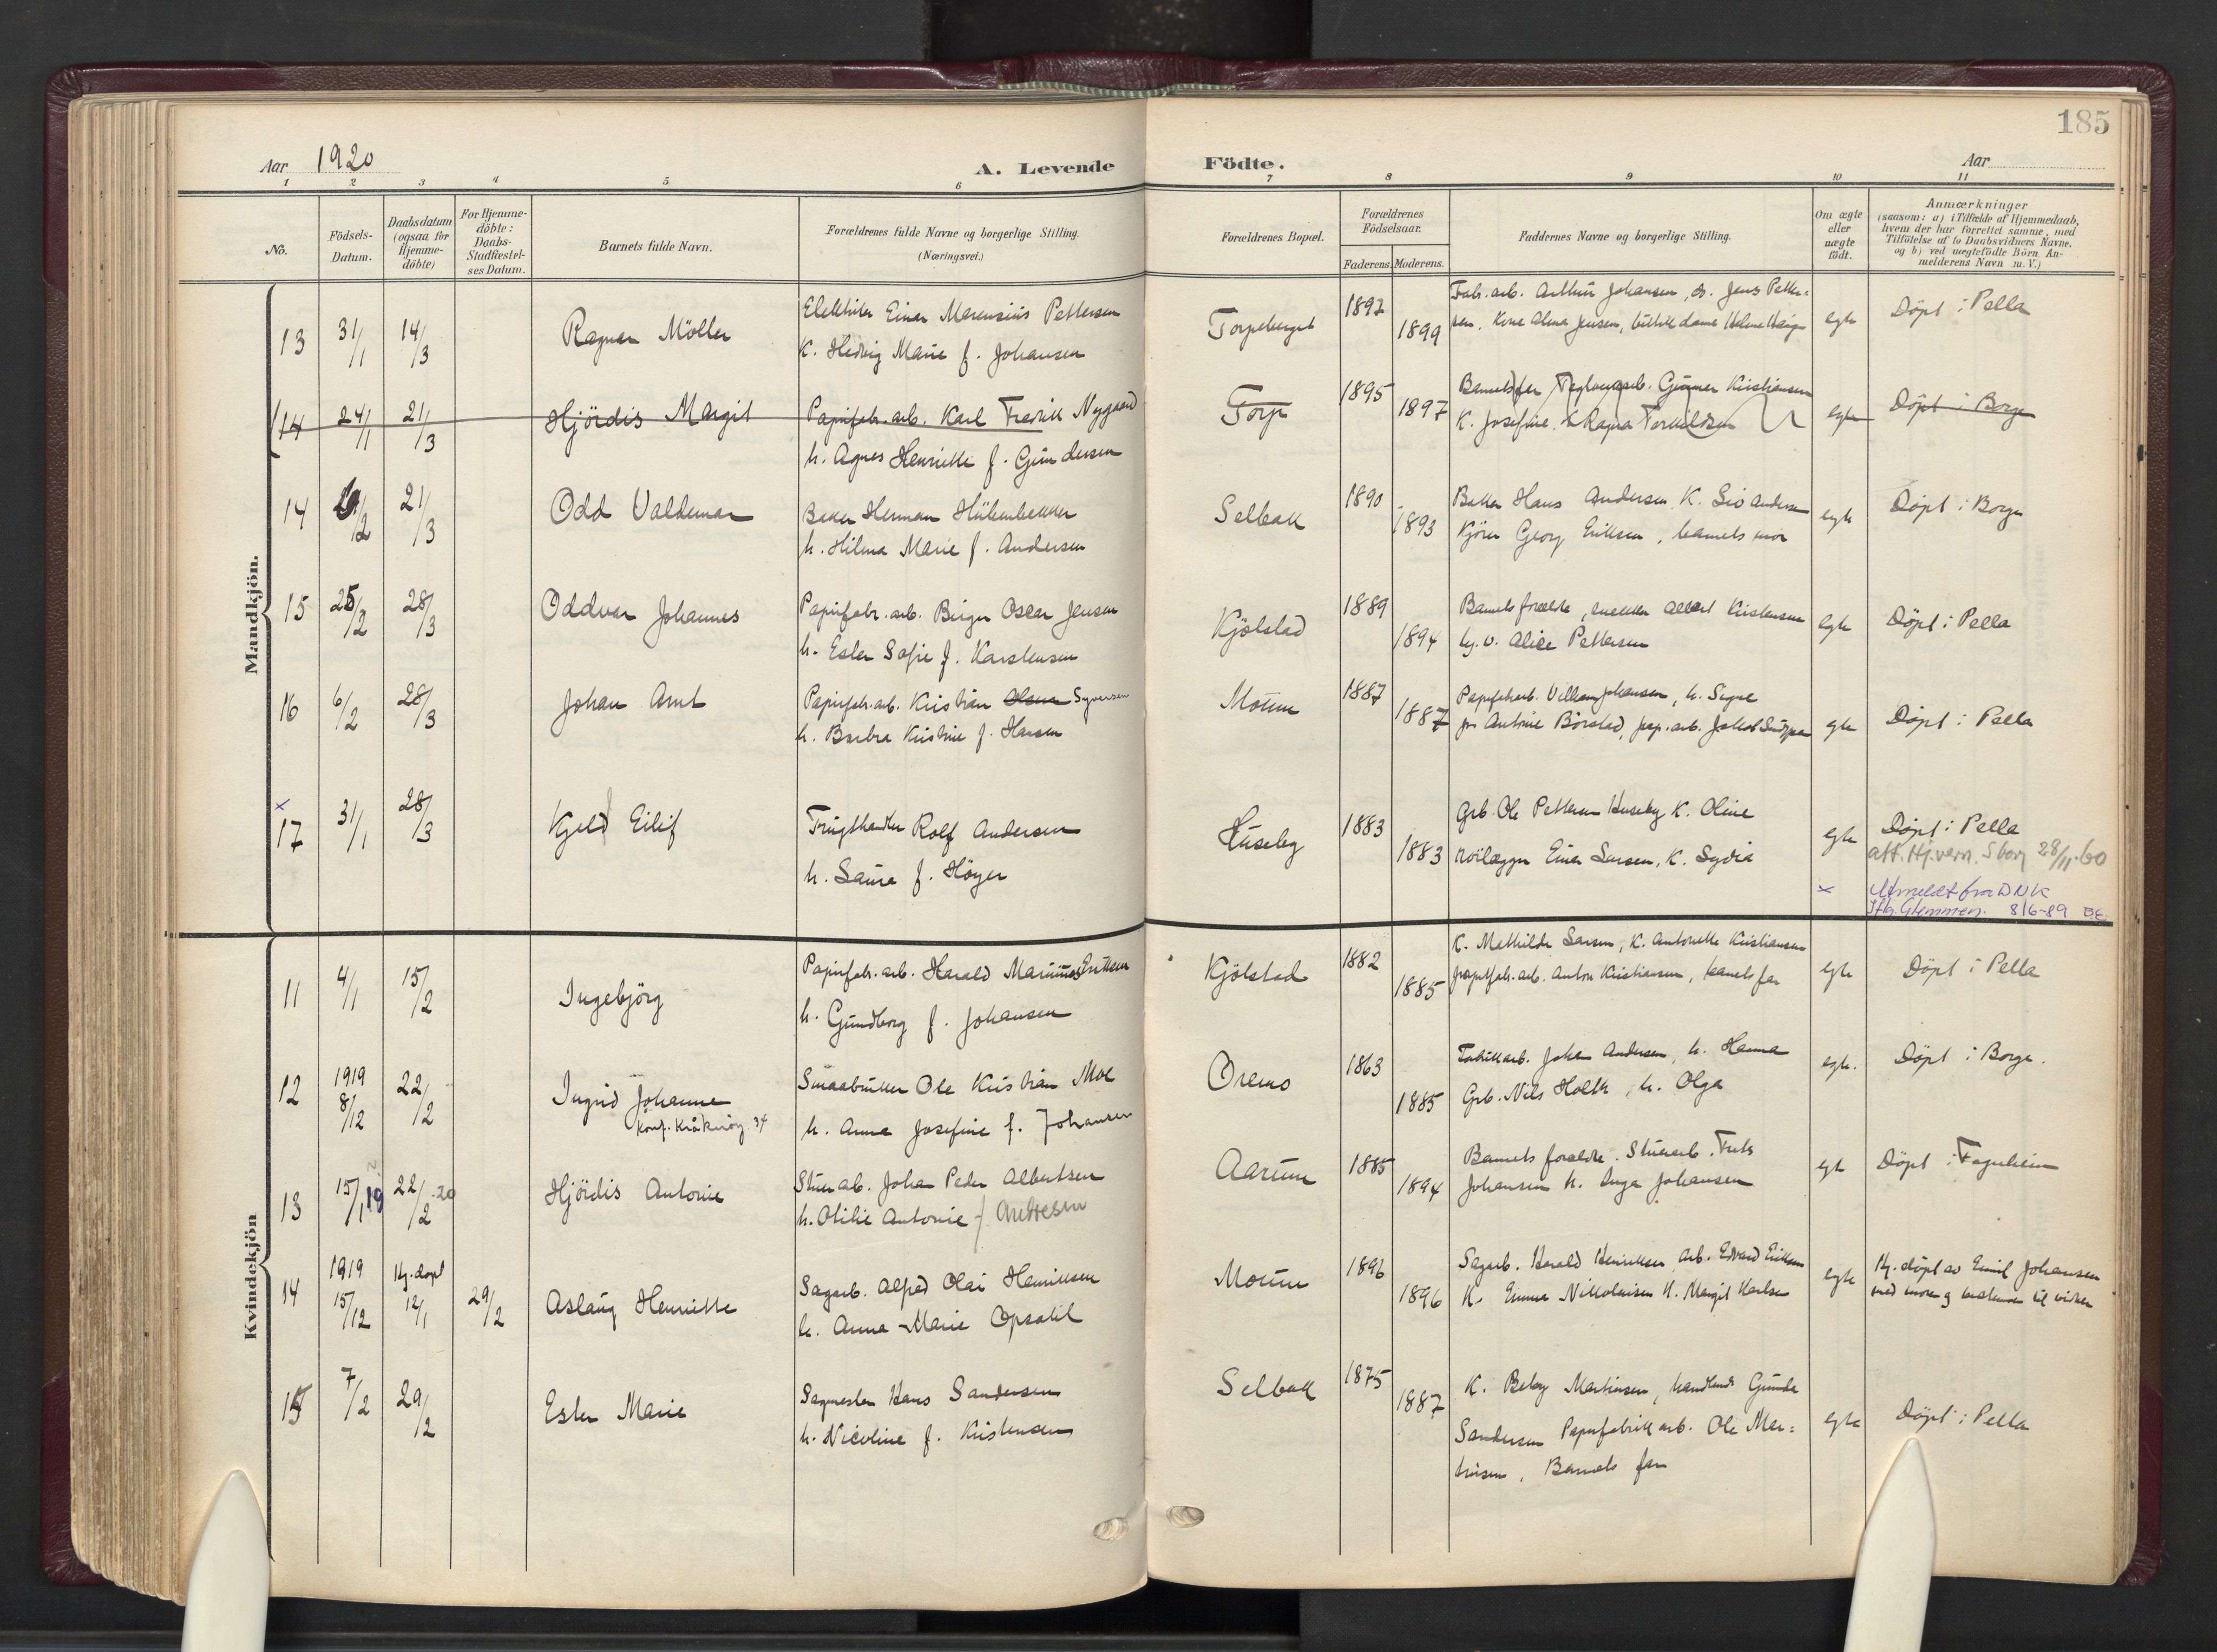 185
Aar 1920
A. Levende
Födte.
Aar
1 2 3 4 5 6 7 8 9 10 11
No.
Födsels-
Datum.
Daabsdatum
(ogsaa for
Hjemme-
döbte)
For Hjemme-
döbte:
Daabs-
Stadfæstel-
ses Datum.
Barnets fulde Navn.
Forældrenes fulde Navne og borgerlige Stilling.
(Næringsvei.)
Forældrenes Bopæl.
Forældrenes
Födselsaar.
Faderens. Moderens.
Faddernes Navne og borgerlige Stilling.
Om ægte
eller
uægte
födt.
Anmærkninger
(saasom: a) i Tilfælde af Hjemmedaab,
hvem der har forrettet samme, med
Tilföielse af to Daabsvidners Navne.
og b) ved uægtefödte Börn An-
melderens Navn m. V.)
Mandkjön.
13 31/1 14/3 Ragnar Möller
Elektriker Einar Marensius Pettersen
K. Hedvig Marie f. Johansen
Torpeberget 1897 1899
Fabr. arb. Arthur Johansen, do. Jens Petter-
sen, Kone Alma Jensen, butikdame Helene
egte Döpt i Pella
14 24/1 21/3 Hjördis Margit
Papirfabr. arb. Karl Fredrik Nygaard
h. Agnes Henriette f. Gundersen
Torp 1895 1897
Barnets far, Teglverksarb. Gunner Kristiansen
K. Josefine Ragna Torkildsen
egte Döpt i Borge
14 21/3 Odd Valdemar
Baker Herman
h. Hilma Marie f. Andersen
Selbak 1890 1893
Baker Hans Andersen K. Andersen
Kjörer Georg Eriksen, barnets mor
egte Döpt i Borge
15 25/2 28/3 Oddvar Johannes
Papirfabr. arb. Birger Oscar Jensen
h. Ester Sofie f. Karstensen
Kjölstad 1889 1894
Barnets forældre, snekker Albert Kristensen
Alice Pettersen
egte Döpt i Pella
16 6/2 28/3 Johan Arnt
Papirfabr. arb. Kristian Olsen Syversen
h. Barbra Kristine f. Hansen
Moum 1887 1887
Papirfabarb. Villiam Johansen, h. Signe
fr. Antonie Börstad, pap. arb. Jakob
egte Döpt i Pella
x
17 31/1 28/3 Kjeld Eilif
Frugthandler Rolf Andersen
h. Laura f. Höyer
Huseby 1883 1883
Grb. Ole Pettersen Huseby K. Oline
Einar Larsen, K. Sydia
egte Döpt i Pella
att. Hj.vern. Sborg 28/11-60
x Utmeldt fra DNK
Ifg. Glemmen. 8/6-89
Kvindekjön
11 4/1 15/2 Ingebjörg
Papirfabr. arb. Harald Marinius Eriksen
h. Gundborg f. Johansen
Kjölstad 1882 1885
K. Mathilde Larsen, K. Antonette Kristiansen
papirfabr. arb. Anton Kristiansen, barnets far
egte Döpt i Pella
12 1919 8/12 22/2 Ingrid Johanne
Konf. Kråkeröy 34
Smaabruker Ole Kristian Moe
h. Anna Josefine f. Johansen
Oremo 1863 1885
Fabrikkarb. Johan Andersen, h. Hanna
Grb. Nils Holth, h. Olga
egte. Döpt i Borge.
13 15/1 19 22/2 -20 Hjördis Antonie
Stuerarb. Johan Peder Albertsen
h. Otilie Antonie f. Andresen
Aarum 1885 1894
Barnets forældre. Stuerarb. Frits
Johansen h. Inga Johansen
egte Döpt i Fagerheim
14 1919 15/12 Hj. döpt 12/1 29/2 Aslaug Henriette
Sagarb. Alfred Olai Henriksen
h. Anna Marie Opsahl
Moum 1896 1896
Sagarb. Harald Henriksen, arb. Edvard Eriksen
K. Emma Nikolaisen K. Margit Karlsen
egte Hj. döpt av Emil Johansen
med mor og
15 7/2 29/2 Ester Marie
Sagmester Hans Sandersen
h. Nicoline f. Kristensen
Selbak 1875 1887
K. Betsy Martinsen, handlende Gunda
Sandersen Papirfabrik arb. Ole Mar-
tinsen, Barnets far
egte Döpt i Pella